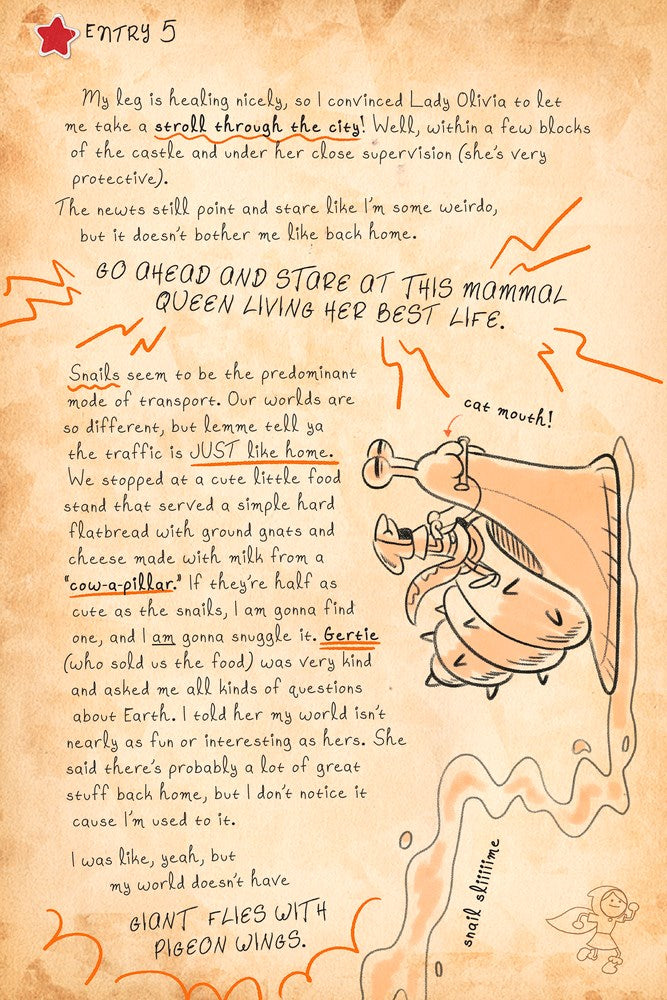 ENTRY 5
My leg is healing nicely, so I convinced Lady Olivia to let
me take a stroll through the city! Well, within a few blocks
of the castle and under her close supervision (she's very
protective).
The newts still point and stare like I'm some weirdo,
but it doesn't bother me like back home.
GO AHEAD AND STARE AT THIS MAMMAL
QUEEN LIVING HER BEST LIFE.
Snails seem to be the predominant
mode of transport. Our worlds are
so different, but lemme tell ya
the traffic is JUST like home.
We stopped at a cute little food
stand that served a simple hard
flatbread with ground gnats and
cheese made with milk from a
"cow-a-pillar." If they're half as
cute as the snails, I am gonna find
one, and I am gonna snuggle it. Gertie
(who sold us the food) was very kind
and asked me all kinds of questions
about Earth. I told her my world isn't
nearly as fun or interesting as hers. She
said there's probably a lot of great
stuff back home, but I don't notice it
cause I'm used to it.
I was like, yeah, but
my world doesn't have
GIANT FLIES WITH
PIGEON WINGS.
cat mouth!
snail sliiiiime